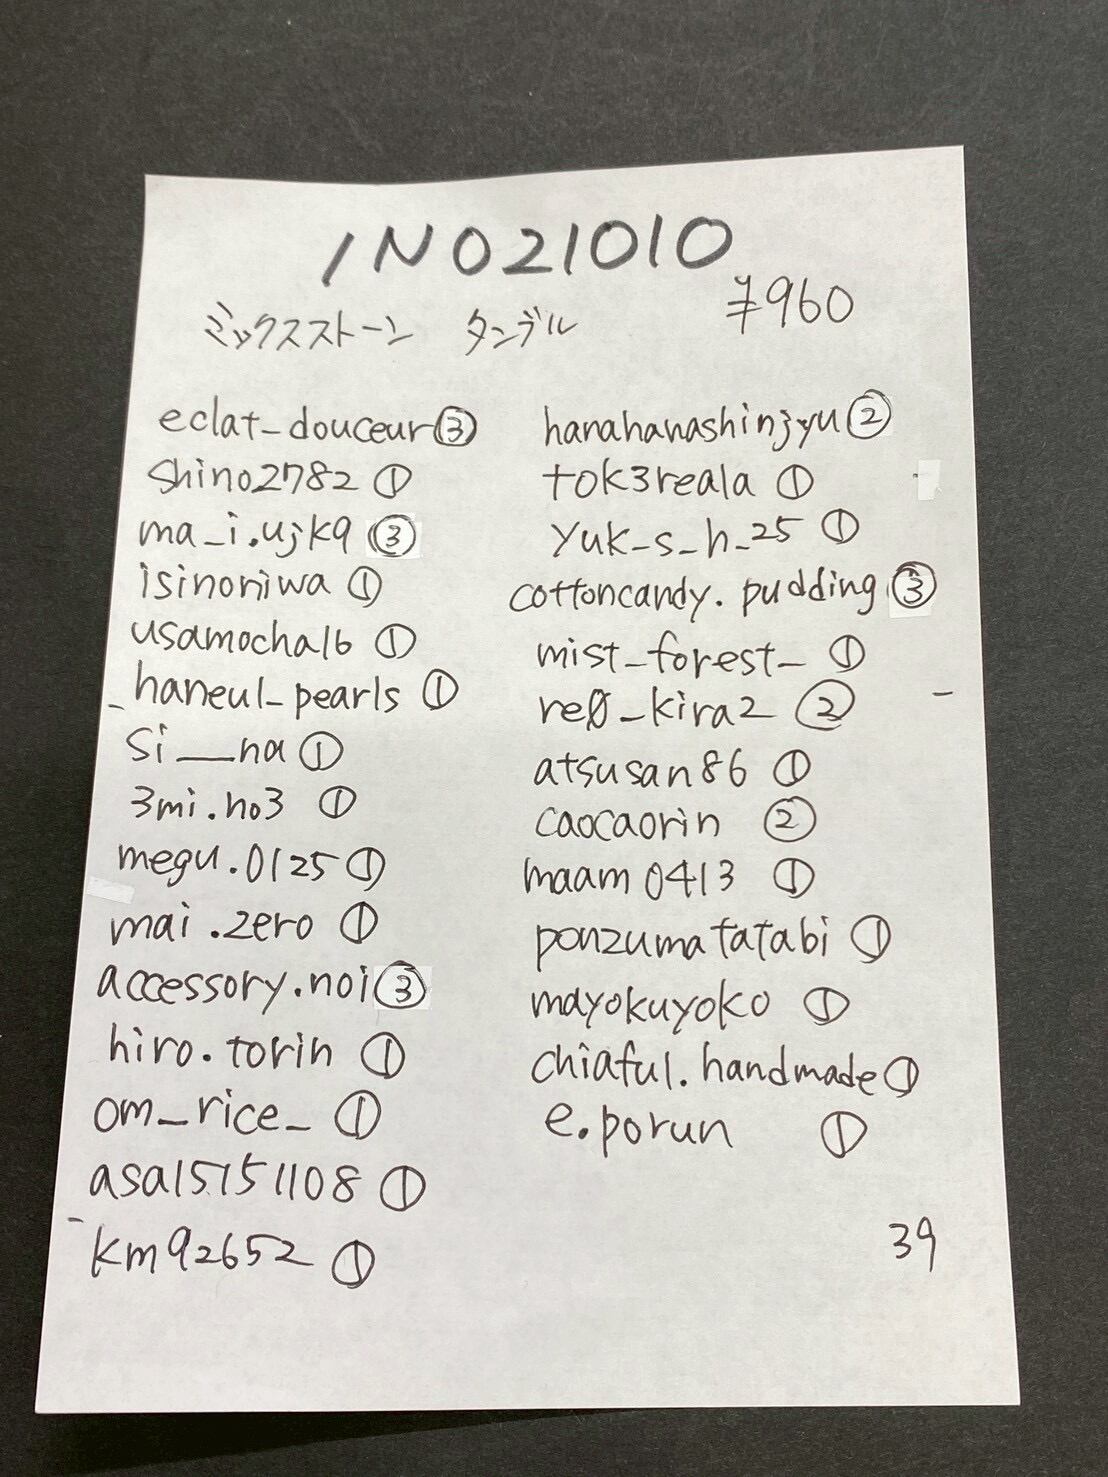 INO21010
¥960
ミックスストーン タンブル
eclat_douceur③
shino2782①
ma_i.ujk9③
isinoniwa①
usamocha16①
_haneul_pearls①
si___na①
3mi.no3①
megu.0125①
mai.zero①
accessory.noi③
hiro.torin①
om_rice_①
asa15151108①
km92652①
hanahanashinjyu②
tok3reala①
yuk_s_h_25①
cottoncandy.pudding③
mist_forest_①
re0_kira2②
atsusan86①
caocaorin②
maam0413①
ponzumatatabi①
mayokuyoko①
chiaful.handmade①
e.porun①
39